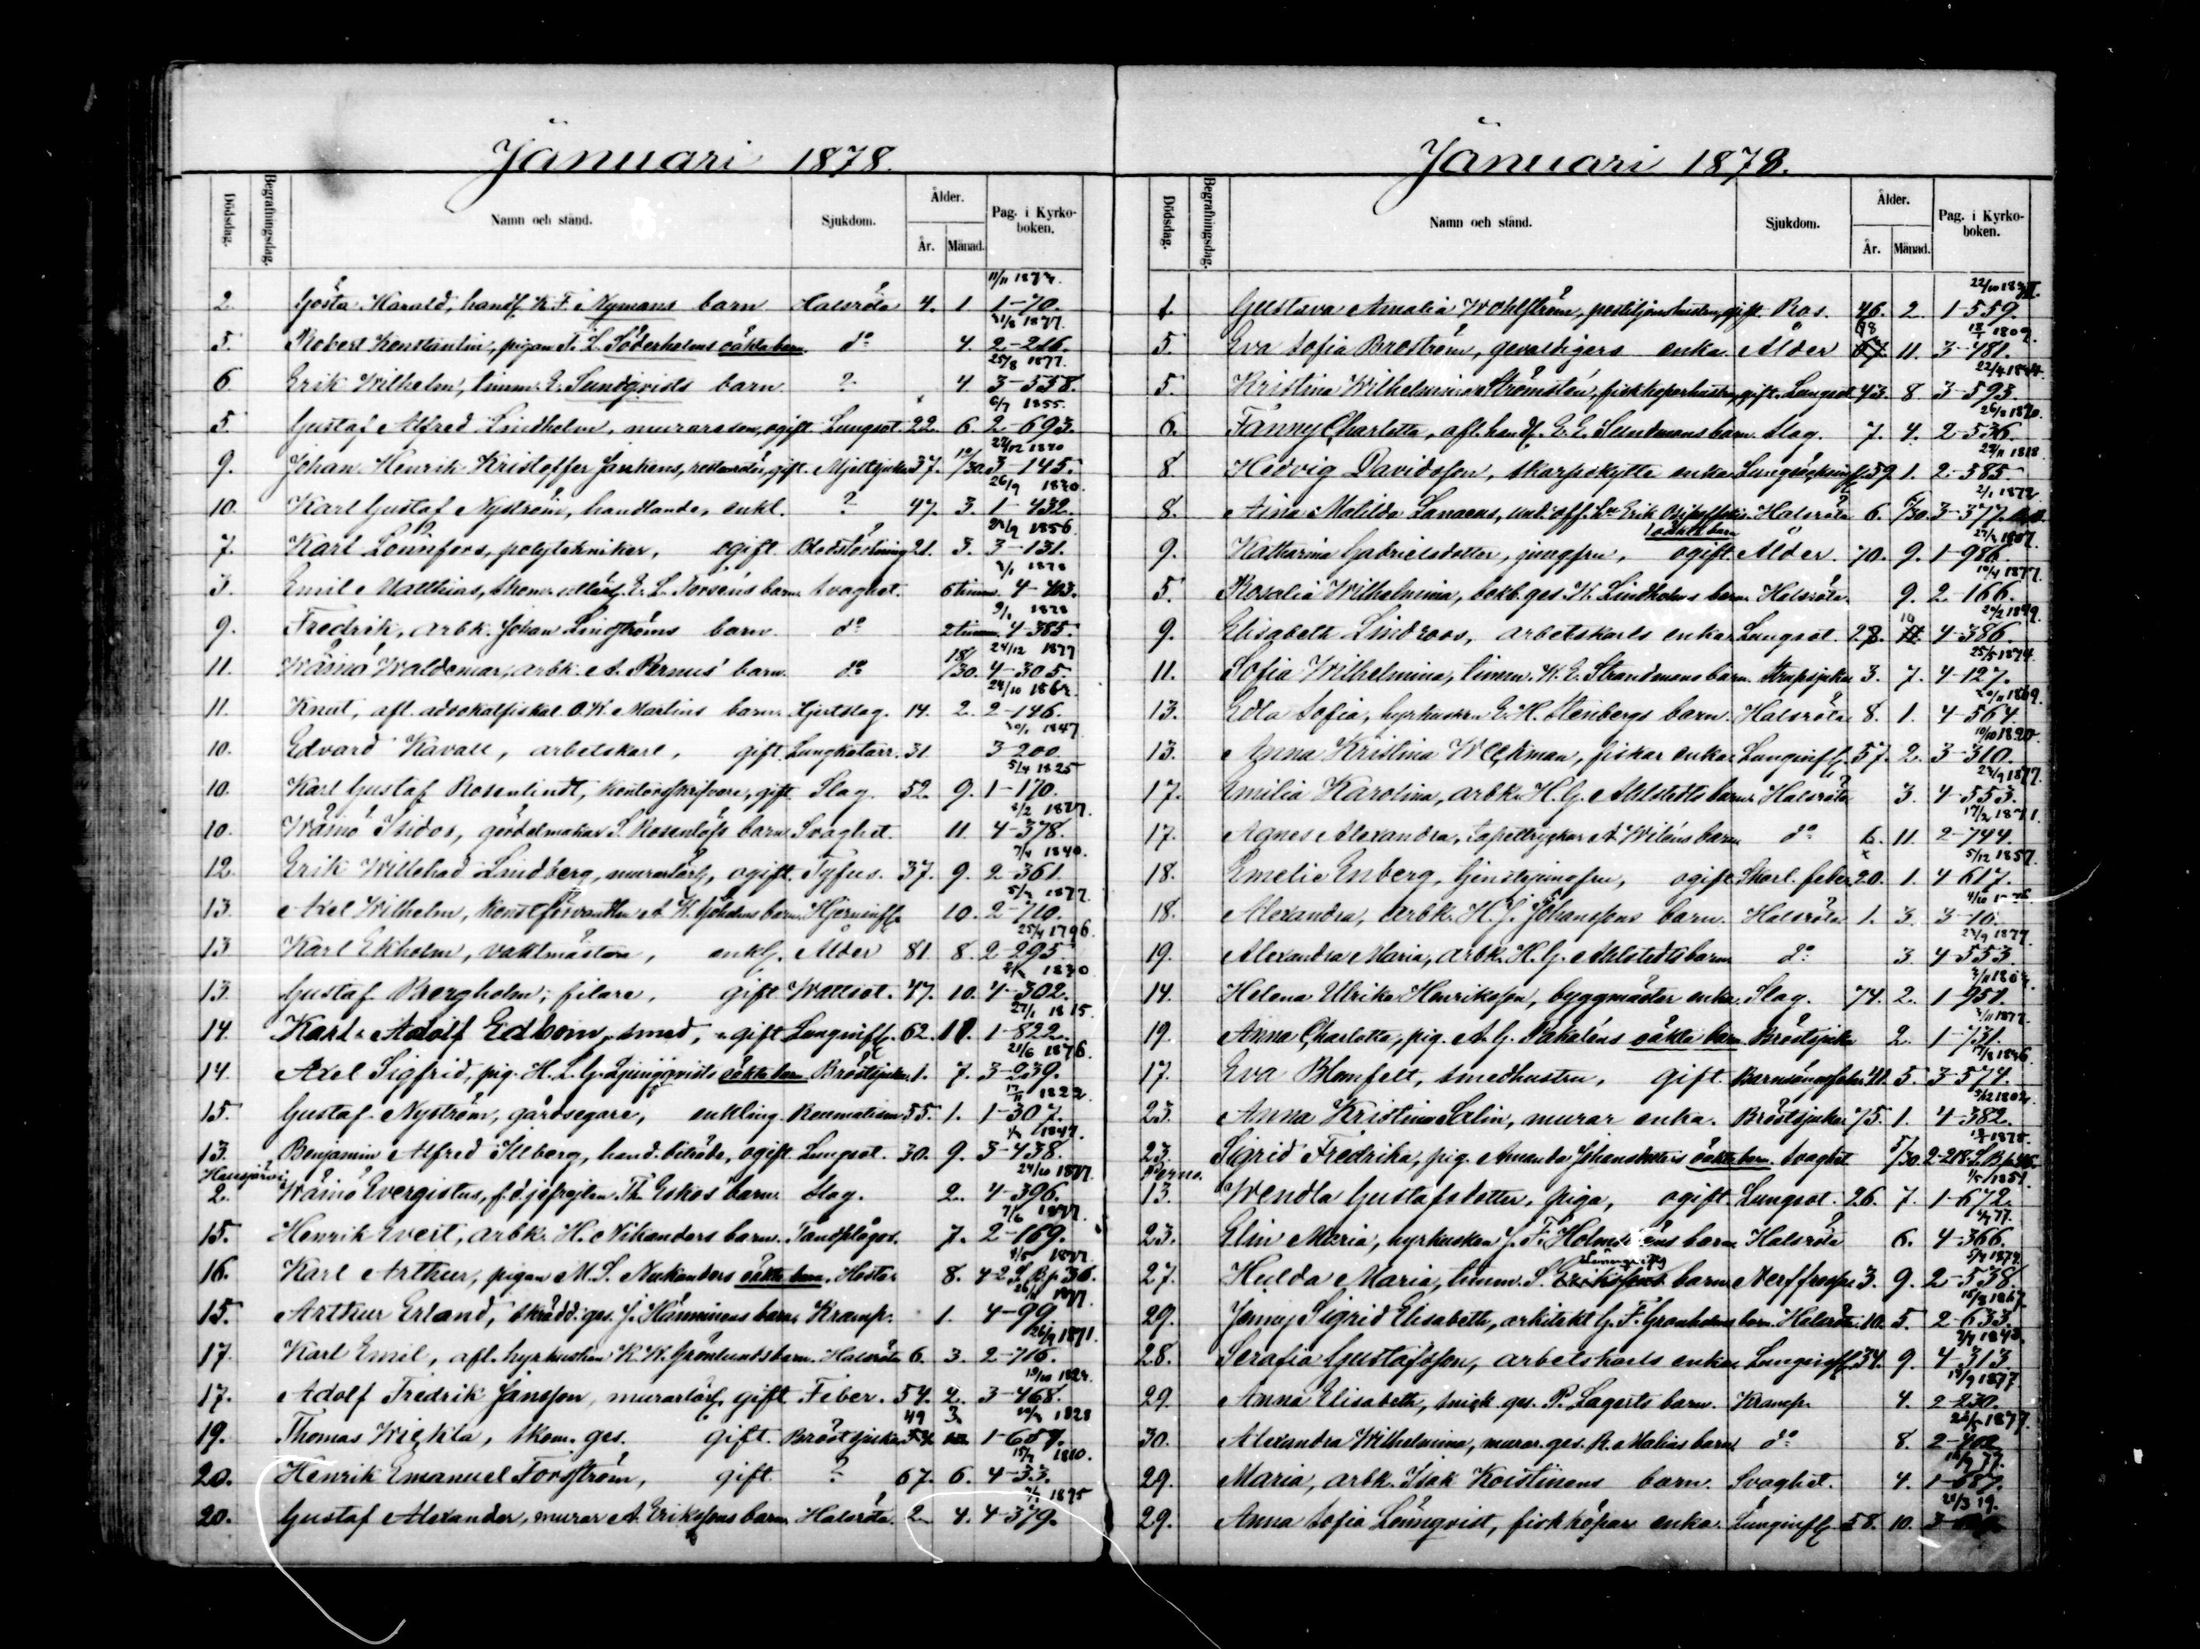 Januari 1878.
Dödsdag. Begrafningsdag. Namn och stånd. Sjukdom. Ålder. År. Månad. Pag. i Kyrkoboken.
11/11 1873.
2. Gösta Harald, handl. K. F. Nymans barn Halsröta 4. 1. 1-70.
31/8 1877.
5. Robert Konstantin, pigan F. L. Söderholms oäkta barn. do 4. 2-216.
25/8 1877.
6. Erik Wilhelm, timm. E. Sundqvists barn ? 4. 3-558.
6/7 1855.
5. Gustaf Alfred Lindholm, murareson, ogift Lungsot. 22. 6. 2-693.
27/12 1840
9. Johan Henrik Kristoffer Jankens, gift. 37. 3-145.
26/9 1830.
10. Karl Gustaf Nyström, handlande, enkl. ? 47. 3. 1-432.
1856
7. Karl Lönnfors, polytekniker, ogift Blodstörtning 21. 3. 3-131.
3/1 1878
3. Emil Matthias, E. L. Forséns barn Svaghet. 6 timm. 4-403.
9/1 1878
9. Fredrik, arbk. Johan Lindströms barn. do 2 timm. 4-385.
24/12 1877
11. Wäinö Waldemar, arbk. A. Pernus' barn do 18/30. 4-305.
24/10 1863.
11. Knut, afl. advokatfiskal O. K. Martins barn. Hjertslag. 14. 2. 2-146.
20/1 1847
10. Edvard Kavall, arbetskarl, gift Lungkatarr. 31. 3-200.
5/4 1825
10. Karl Gustaf Rosenlindt, kontorsskrifvare, gift Slag. 52. 9. 1-170.
2/2 1877.
10. Wäinö Isidor, gördelmakar S. Rosenlöfs barn Svaghet. 11. 4-378.
7/4 1840.
12. Erik Willehad Lindberg, murarlärl., ogift. Tyfus. 37. 9. 2-361.
5/3 1877.
13. Axel Wilhelm, konstförvandten A. W. Sjöholms barn. Hjerninfl. 10. 2-710.
25/4 1796.
13. Karl Ekholm, vaktmästare, enkl. Ålder 81. 8. 2-295.
1830
13. Gustaf Bergholm, filare, gift Wattsot. 47. 10. 4-302.
27/1 1815.
14. Karl Adolf Edbom, smed, gift Lunginfl. 62. 11. 1-822.
21/6 1876.
14. Axel Sigfrid, pig. H. L. G. Ljungqvists oäkta barn Bröstsjuka 1. 7. 3-239.
1822.
15. Gustaf Nyström, gårdsegare, enkling. Reumatism 55. 1. 1-307.
1847.
13. Benjamin Alfred Illberg, hand. biträde, ogift Lungsot. 30. 9. 3-438.
Hausjärvi 24/10 1877.
2. Wäinö Evergistus, Th. Eskos barn. Slag. 2. 4-396.
7/6 1877.
15. Henrik Evert, arbk. H. Nikanders barn. Tandplågor. 7. 2-169.
4/5 1877
16. Karl Arthur, pigan M. S. Neukanders oäkta barn. Hosta. 8. 4-2 L.B.p 36.
26/11 1877.
15. Arthur Erland, skrädd. ges. J. Hänninens barn. Kramp. 1. 4-99.
26/9 1871.
17. Karl Emil, afl. hyrkusken K. W. Grönlunds barn. Halsröta 6. 3. 2-716.
17. Adolf Fredrik Jansson, murarlärl. gift Feber. 54. 2. 3-468.
1828
19. Thomas Wichta, skom. ges. gift. Bröstsjuka 49 3 1-657.
15/7 1810.
20. Henrik Emanuel Fordström, gift ? 67. 6. 4-33.
1875
20. Gustaf Alexander, murar A. Erikssons barn. Halsröta. 2. 4. 4-379.
Januari 1878.
Dödsdag. Begrafningsdag. Namn och stånd. Sjukdom. Ålder. År. Månad. Pag. i Kyrkoboken.
1. Gustava Amalia Wohlström, postiljonshustru, gift. Ros. 46. 2. 1-559.
1809.
5. Eva Sofia Broström, gevaldigers enka Ålder 68 11. 3-481.
22/4 1834.
5. Kristina Wilhelmina Strömsten, fiskköparhustru, gift. Lungsot 43. 8. 3-593.
26/8 1870.
6. Fanny Charlotta, afl. handl. G. E. Sundmans barn. Slag. 7. 4. 2-536.
29/11 1818.
8. Hedvig Davidsson, skarpskytte enka 59. 1. 2-585.
2/1 1872.
8. Aina Matilda Lanaeus, und. off. Halsröta 6. 6/30. 3-377.
27/3 1807.
9. Katharina Gabrielsdotter, jungfru, ogift Ålder. 70. 9. 1-986.
10/4 1877.
5. Rosalia Wilhelmina, bokb. ges. W. Lindholms barn. Halsröta. 9. 2-166.
9. Elisabeth Lindroos, arbetskarls enka Lungsot. 28. 10 4-386.
25/5 1874.
11. Sofia Wilhelmina, timm. K. E. Strandmans barn. Strupsjuka 3. 7. 4-127.
20/11 1869.
13. Edla Sofia, hyrkusken E. H. Stenbergs barn. Halsröta 8. 1. 4-564.
10/10 1820.
13. Anna Kristina Wickman, fiskar enka Lunginfl. 57. 2. 3-310.
23/9 1877.
17. Emilia Karolina, arbk. H. G. Ahlstedts barn Halsröta 3. 4-553.
17/2 1871.
17. Agnes Alexandra, tapettryckar A. Wiléns barn do 6. 11. 2-744.
5/12 1857.
18. Emelie Enberg, tjenstejungfru, ogift Skarl. feber 20. 1. 4-617.
18. Alexandra, arbk. H. J. Johanssons barn. Halsröta 1. 3. 3-10.
23/9 1877.
19. Alexandra Maria, arbk. H. G. Ahlstedts barn do 3. 4-553.
14. Helena Ulrika Henriksson, byggmäster enka Slag. 74. 2. 1-951.
1877.
19. Anna Charlotta, pig. A. G. Pakaléns oäkta barn Bröstsjuka 2. 1-731.
1836.
17. Eva Blomfelt, smedhustru, gift. Barnsängsfeber 41. 5. 3-574.
1802.
23. Anna Kristina Salin, murar enka. Bröstsjuka 75. 1. 4-382.
1878.
23. Sigrid Fredrika, pig. Amanda Johansdotters oäkta barn. Svaghet 5/30. 2-218 L.B.p 46.
Perno. 1851.
13. Wendla Gustafsdotter, piga, ogift. Lungsot. 26. 7. 1-672.
77.
23. Elin Maria, hyrkusken J. F. Holmströms barn Halsröta 6. 4-366.
5/4 1874.
27. Hulda Maria, timm. S. barn Nerffeber 3. 9. 2-538.
15/8 1867.
29. Jenny Sigrid Elisabeth, arkitekt G. F. Granholms barn. Halsröta 10. 5. 2-633.
1843.
28. Serafia Gustafsson, arbetskarls enka Lunginfl. 34. 9. 4-313.
1877.
29. Anna Elisabeth, snick. ges. P. Lagerts barn. Kramp. 4. 2-230.
1877.
30. Alexandra Wilhelmina, murar. ges. R. Malins barn. do 8. 2-402.
77.
29. Maria, arbk. Isak Koistinens barn. Svaghet. 4. 1-687.
21/3 19.
29. Anna Sofia Lönnqvist, fiskköpar enka. Lunginfl. 58. 10.